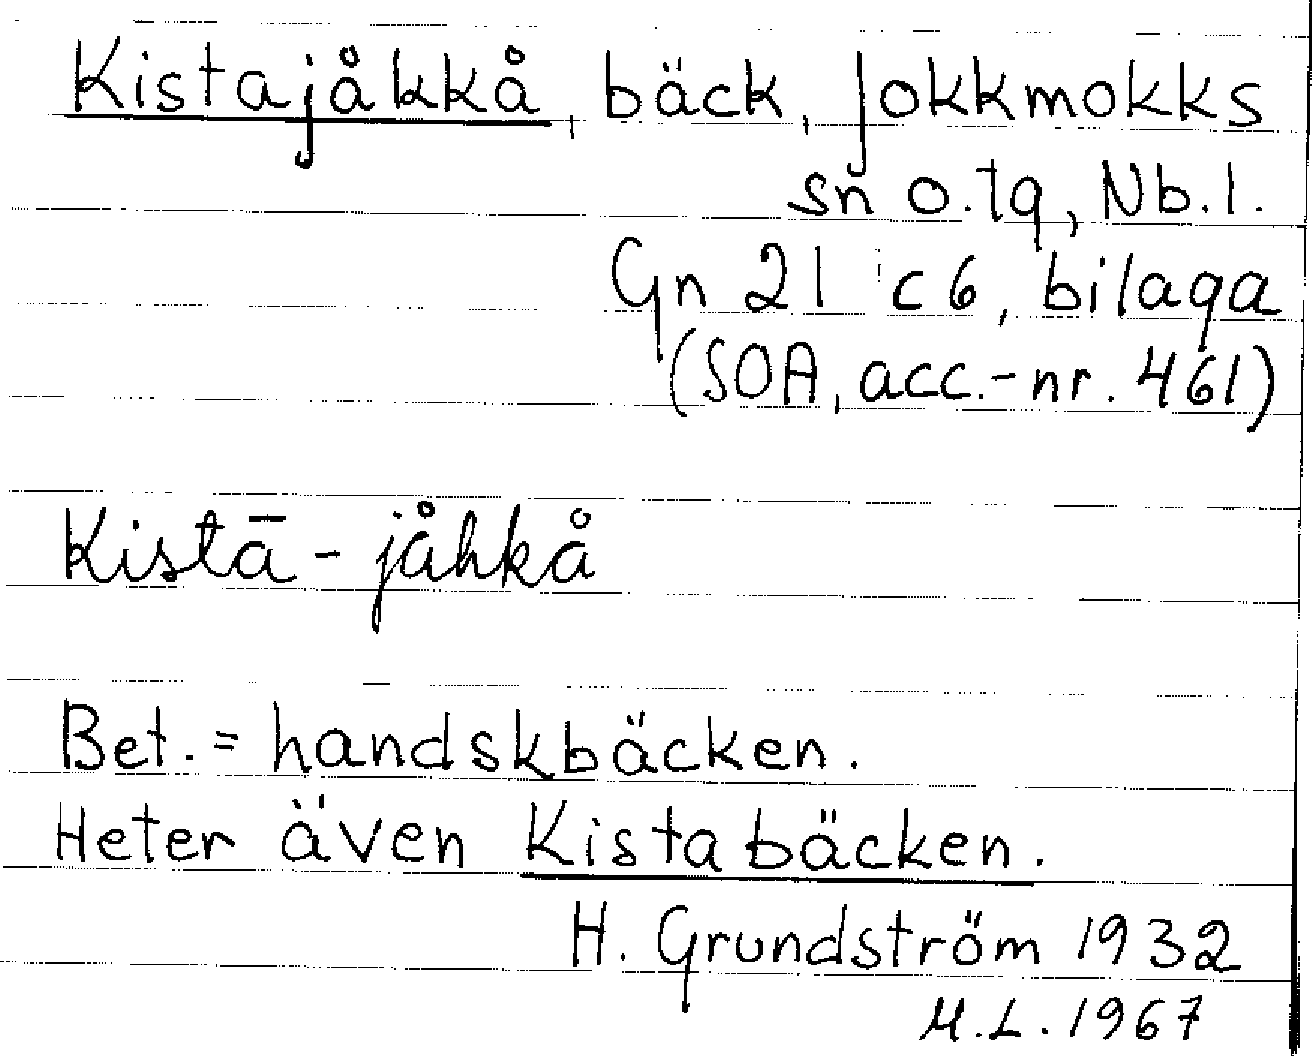 Kistajåkkå, bäck, Jokkmokks
sn o. tg, Nb. l.
Gn 21 c 6, bilaga
(SOA, acc.-nr. 461)
Kistā-jåhkå
Bet. = handskbäcken.
Heter även Kistabäcken.
H. Grundström 1932
M.L. 1967